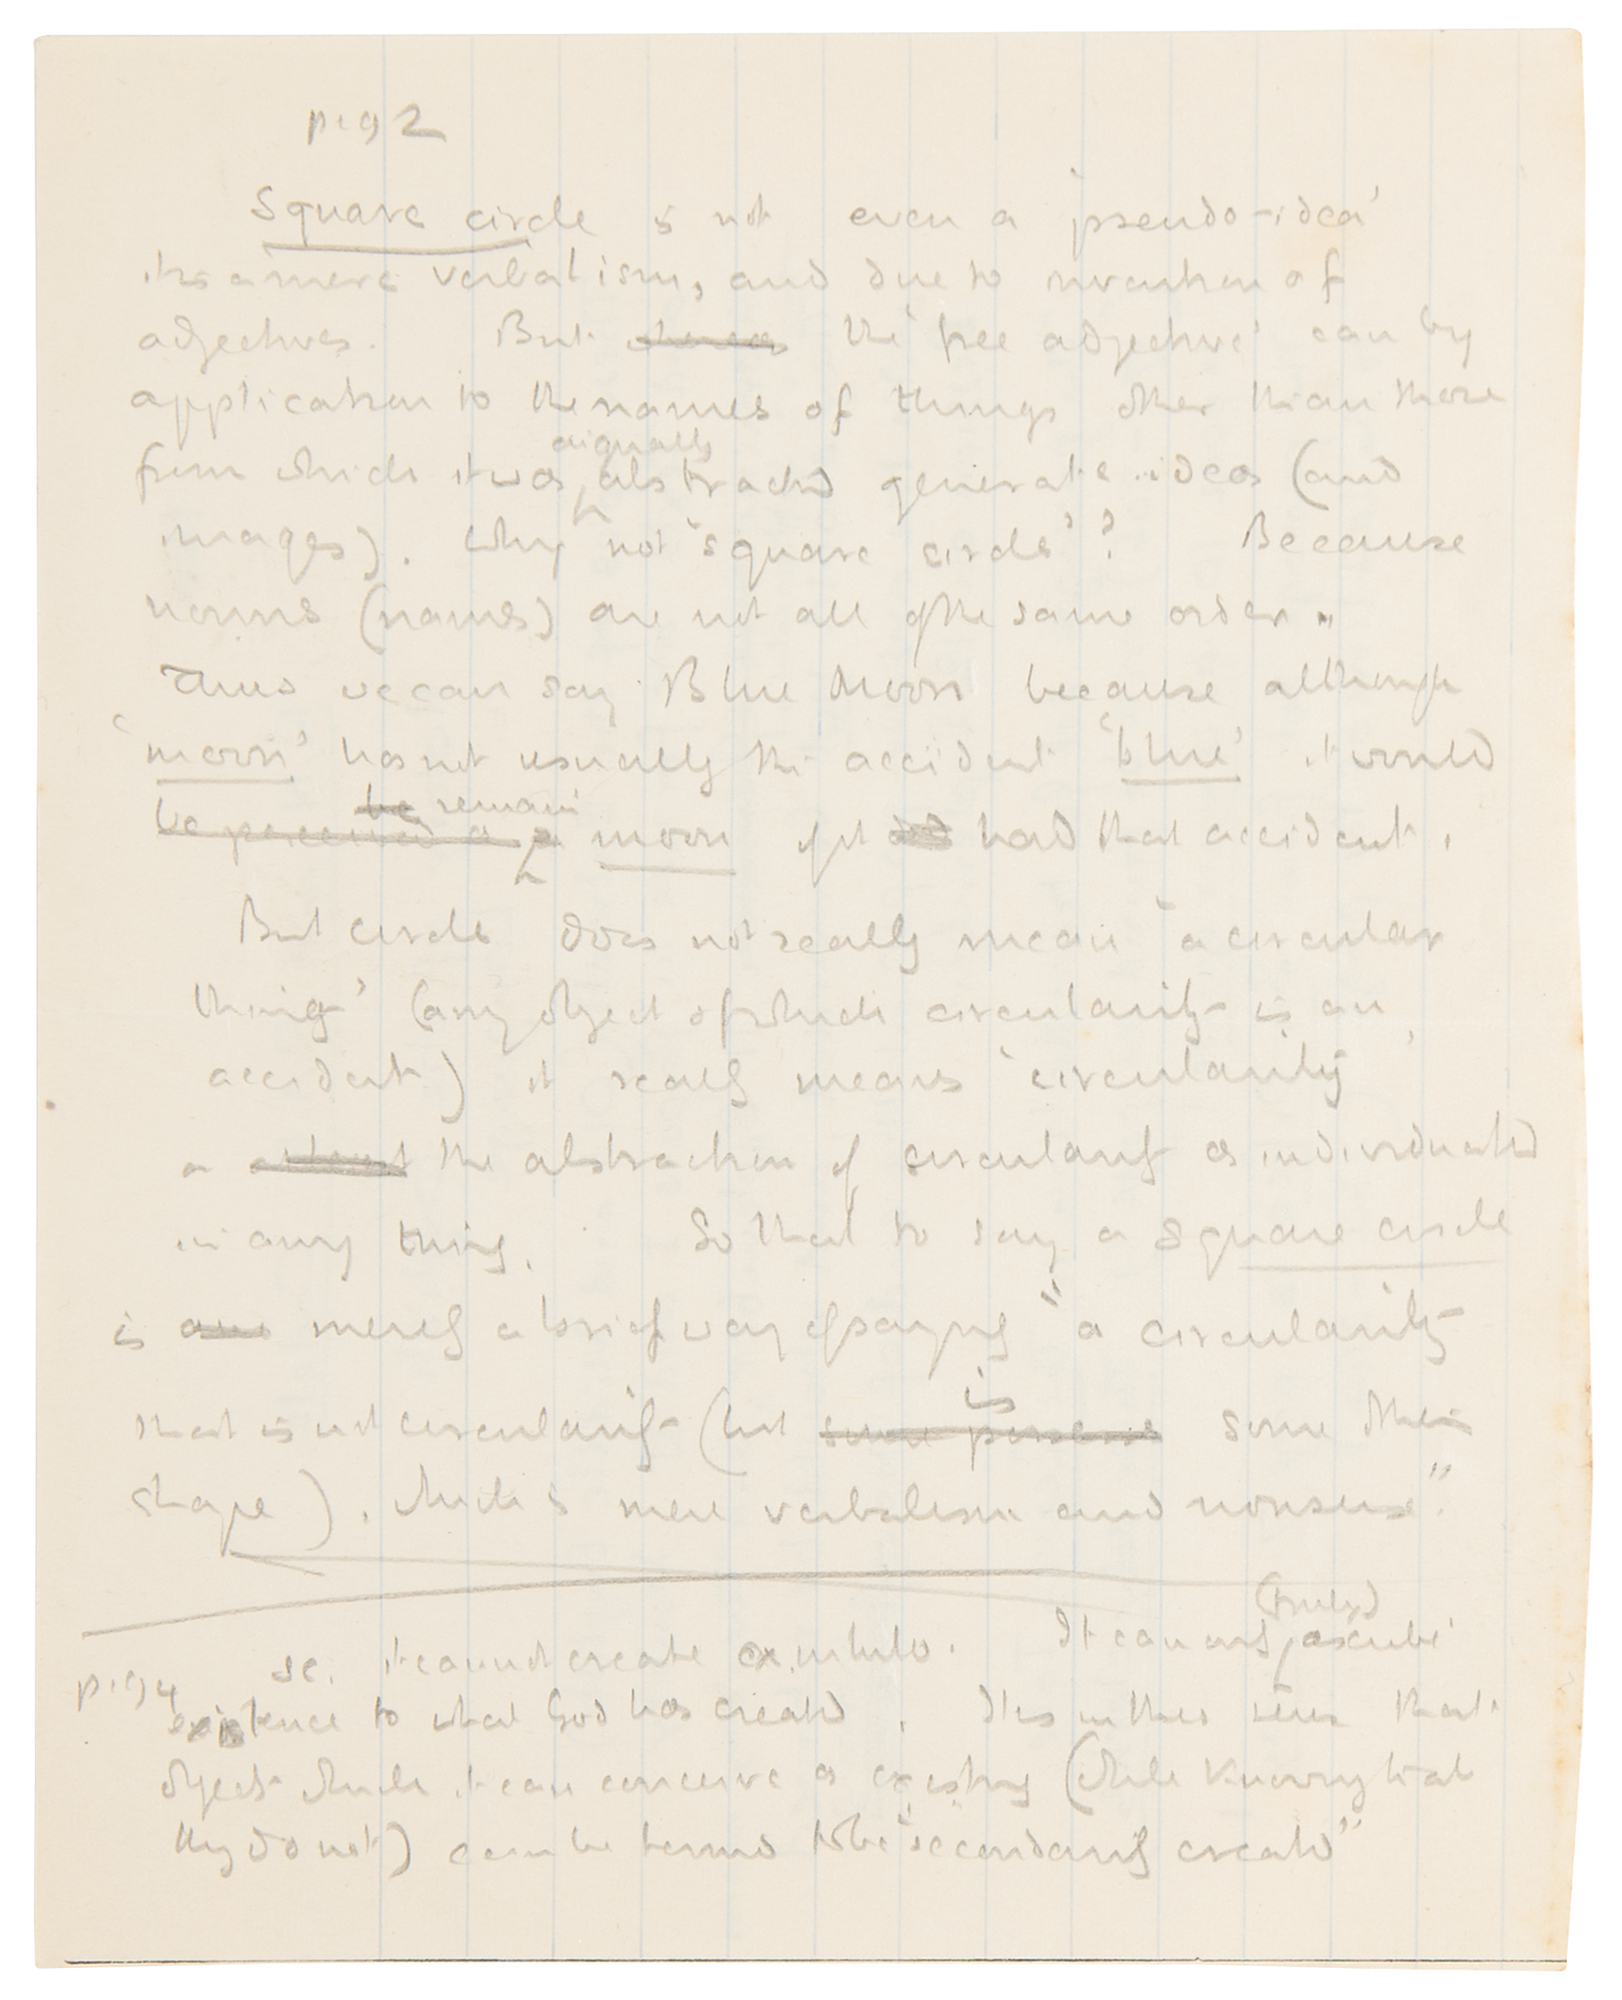 p. 92
Square circle is not even a 'pseudo-idea'
it is a mere verbalism, and due to invention of
adjectives. But whereas the 'free adjective' can by
application to the names of things other than those
originally
from which it was abstracted generate ideas (and
images). Why not 'square circle'? Because
nouns (names) are not all of the same order.
Thus we can say Blue Moon because although
'moon' has not usually the accident 'blue' it would
be remain
be perceived as a moon if it had that accident.
But circle does not really mean 'a circular
thing' (any object of which circularity is an
accident) it really means 'circularity'
or the abstraction of circularity as individuated
in any thing. So that to say a square circle
is merely a brief way of saying "a circularity
is
that is not circularity (but some possesses some other
shape). Which is mere verbalism and nonsense".
(truly)
p. 94 sc. it cannot create ex nihilo. It can only ascribe
existence to what God has created. It is in this view that
objects which it can conceive as existing (while knowing that
they do not) can be termed to be "secondarily created"